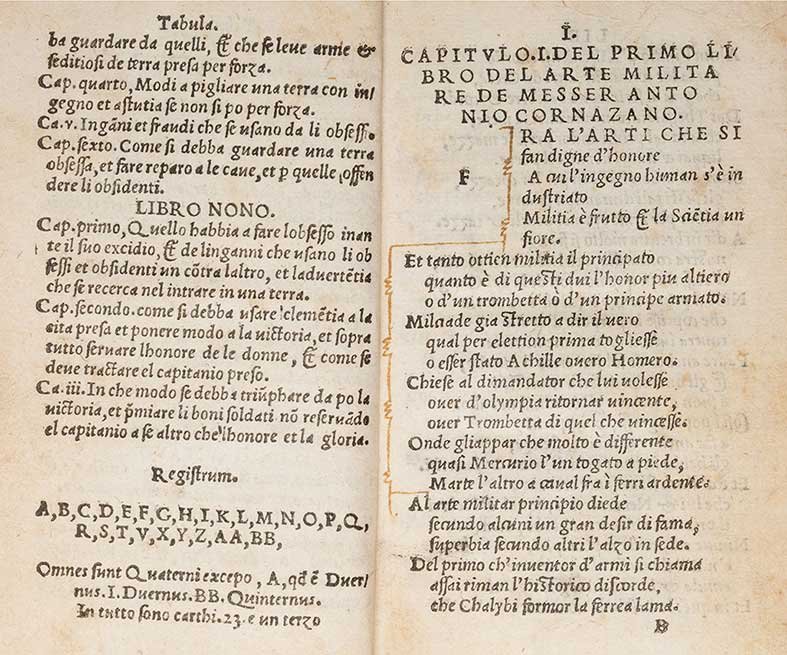 Tabula.
ba guardare da quelli, & che se leue arme &
seditiosi de terra presa per forza.
Cap. quarto, Modi a pigliare una terra con in/
gegno et astutia se non si po per forza.
Ca. v. Ingãni et fraudi che se usano da li obsessi.
Cap. sexto. Come si debba guardare una terra
obsessa, et fare reparo a le caue, et p quelle offen
dere li obsidenti.
LIBRO NONO.
Cap. primo, Quello habbia a fare lobsesso inan
te il suo excidio, & de linganni che usano li ob
sessi et obsidenti un cõtra laltro, et laduertẽtia
che se recerca nel intrare in una terra.
Cap. secondo. come si debba usare clemẽtia a la
cita presa et ponere modo a la uictoria, et sopra
tutto seruare lhonore de le donne, & come se
deue tractare el capitanio preso.
Ca. iii. In che modo se debba triũphare da po la
uictoria, et p̃miare li boni soldati nõ reseruãdo
el capitanio a se altro che lhonore et la gloria.
Registrum.
A, B, C, D, E, F, G, H, I, K, L, M, N, O, P, Q,
R, S, T, V, X, Y, Z, AA, BB,
Omnes sunt Quaterni excepo, A, qđ ẽ Duer/
nus. I. Duernus. BB. Quinternus.
In tutto sono carthi. 23. e un terzo
I.
CAPITVLO. I. DEL PRIMO LI/
BRO DEL ARTE MILITA
RE DE MESSER ANTO
NIO CORNAZANO.
F RA L'ARTI CHE SI
fan digne d'honore
A cui l'ingegno human s'è in
dustriato
Militia è frutto & la Sciẽtia un
fiore.
Et tanto ottien militia il principato
quanto è di questi dui l'honor piu altiero
o d'un trombetta ò d'un principe armato.
Milciade gia stretto a dir il uero
qual per elettion prima togliesse
o esser stato Achille ouero Homero.
Chiese al dimandator che lui uolesse
ouer d'olympia ritornar uincente,
ouer Trombetta di quel che uincesse.
Onde gliappar che molto è differente
quasi Mercurio l'un togato a piede,
Marte l'altro a caual fra i ferri ardente.
Al arte militar principio diede
secundo alcuni un gran desir di fama,
superbia secundo altri l'alzo in sede.
Del primo ch'inuentor d'armi si chiama
assai riman l'historico discorde,
che Chalybi formor la ferrea lama.
B